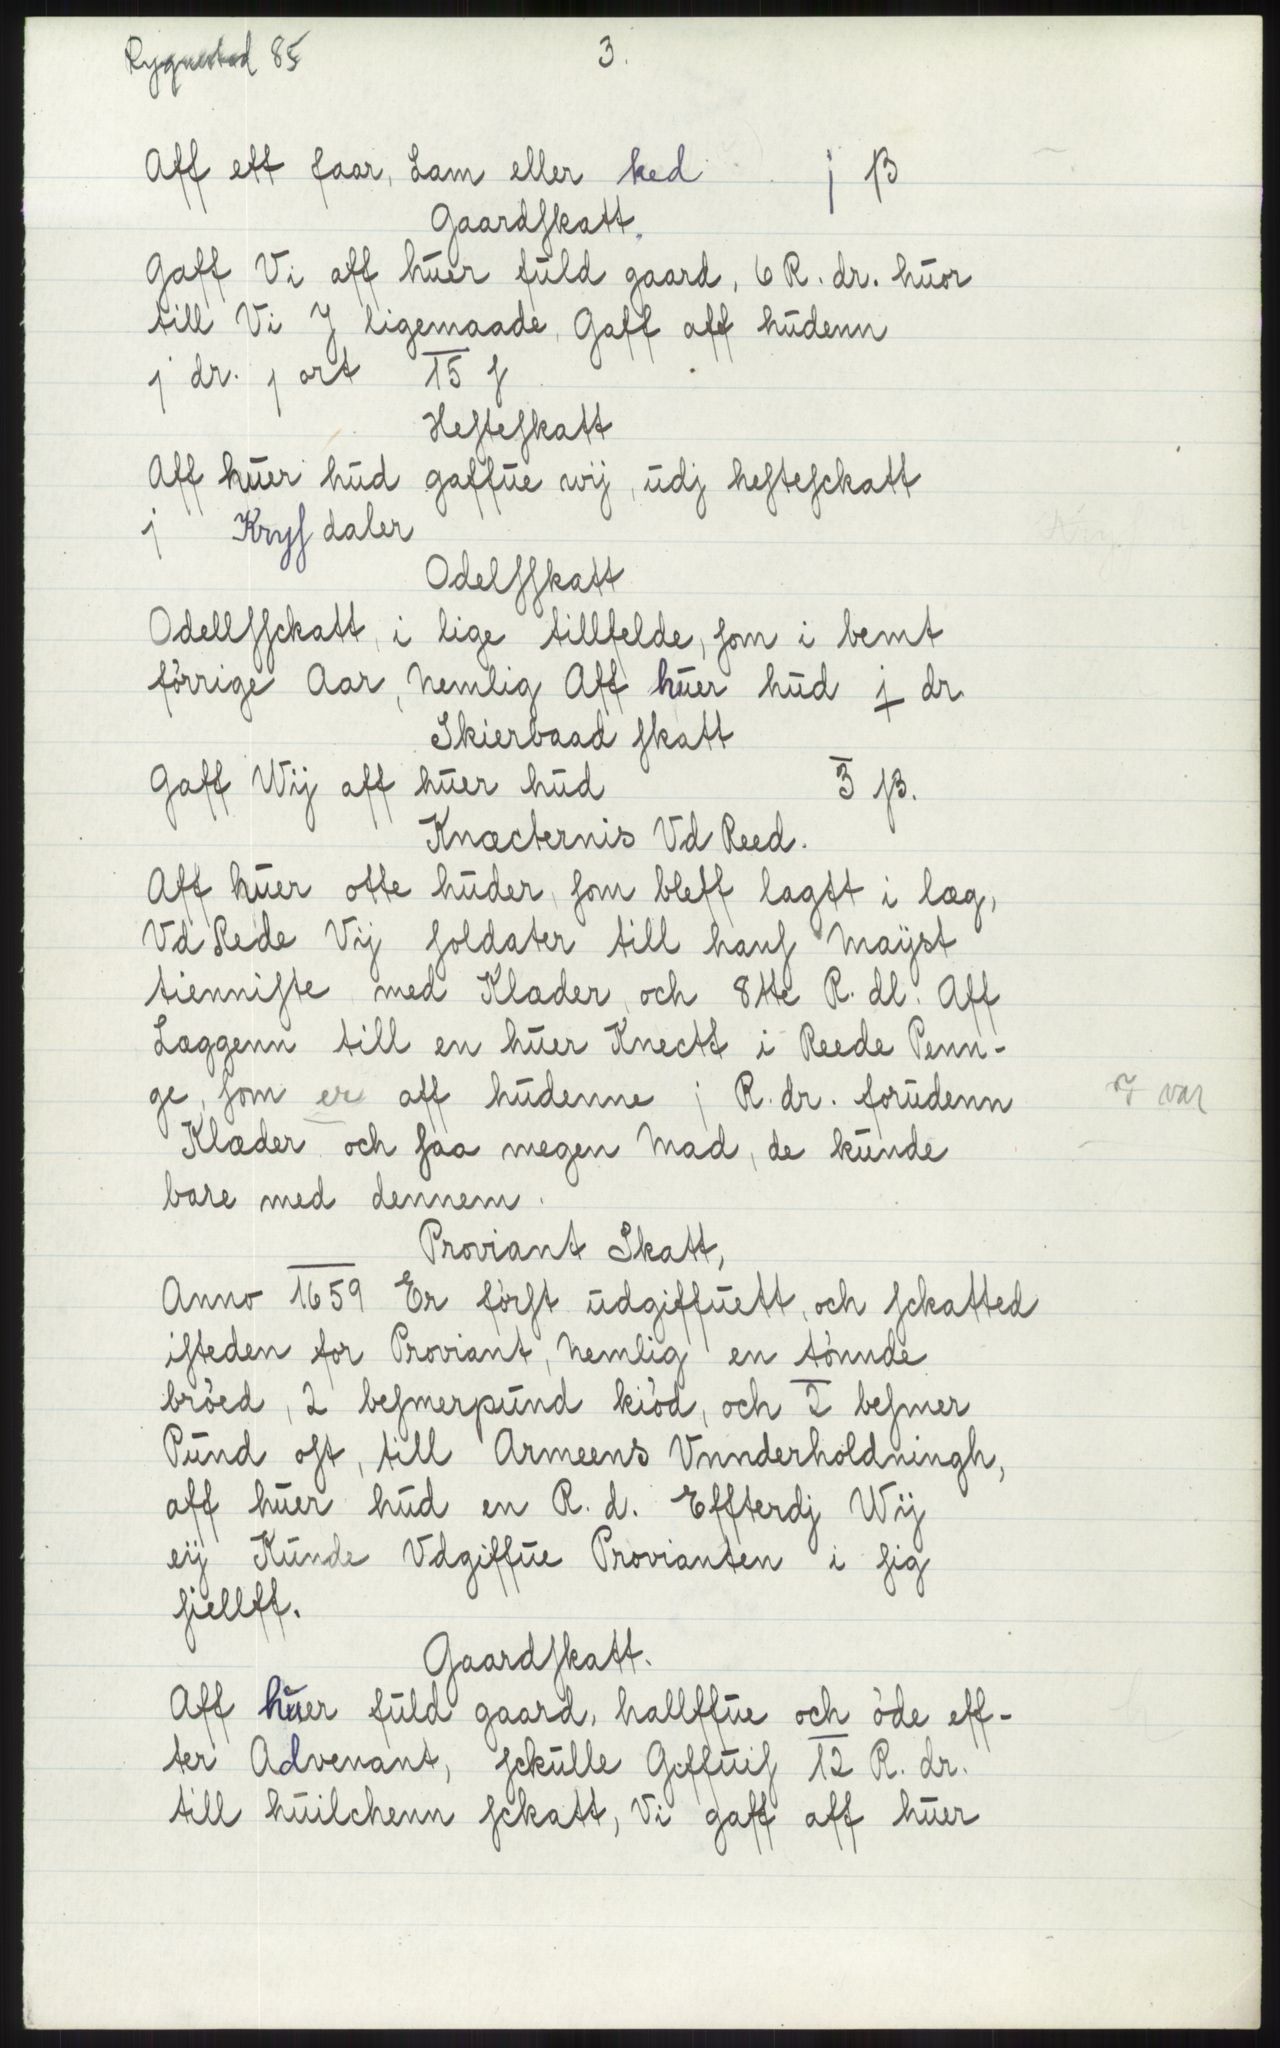 Rygnestad 85
3.
Aff ett faar, Lam eller ked j ß
Gaardſkatt.
Gaff Vi aff hūer fūld gaard, 6 R. dr. hūor
till Vi J ligemaade, Gaff aff hūdenn
j dr. j ort 15 ſ
Heſteſkatt
Aff hūer hūd gaffūe wij, ūdj heſteſckatt
j Kryſ daler
Odelſſkatt
Odellſſckatt, i lige tillfelde, ſom i bemt
förrige Aar, Nemlig Aff hūer hūd j dr
Skierbaad ſkatt
Gaff Wij aff hūer hūd 3 ß.
Knæcternis Vd Reed.
Aff hūer otte hūder, ſom bleff lagtt i læg,
Vd Rede Vij ſoldater till hanſ Maÿst
tienniſte med Klæder, och 8tte R. dl. Aff
Læggenn till en hūer Knectt i Reede Penn-
ge, ſom er aff hūdenne j R. dr. forūdenn
J var
Klæder och ſaa megen Mad, de kūnde
bære med dennem.
Proviant Skatt,
Anno 1659 Er förſt ūdgiffūett, och ſckatted
iſteden for Proviant, Nemlig en tönnde
bröed, 2 beſmerpūnd kiöd, och 2 beſmer
Pūnd oſt, till Armeens Vnnderholdningh,
aff hūer hūd en R. d. Effterdj Wij
eij Kūnde Vdgiffūe Provianten i ſig
ſiellff.
Gaardſkatt.
Aff hūer fūld gaard, hallffūe och öde eff-
ter Advenant, ſckūlle Geffūiſ 12 R. dr.
till hūilchenn ſckatt, Vi gaff aff hūer